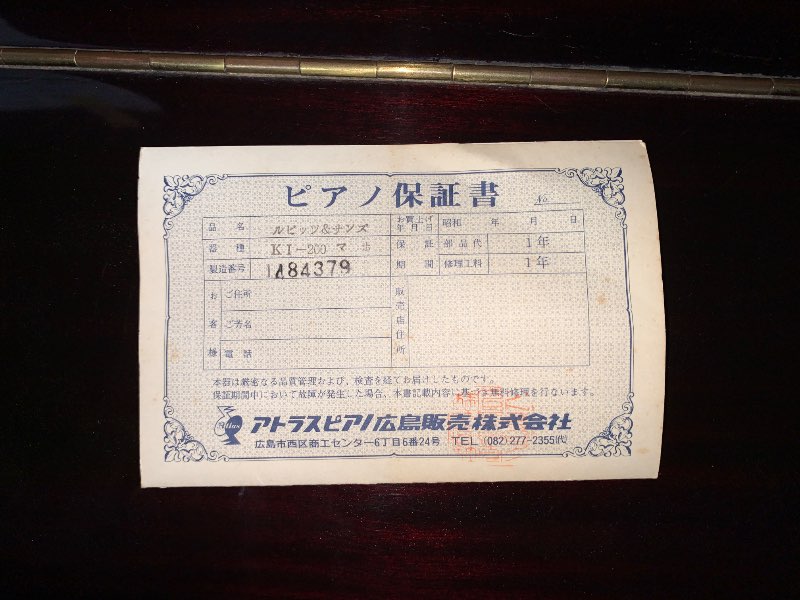 ピアノ保証書
No.
品名 ルビッツ&サンズ お買上げ年月日 昭和 年 月 日
器種 KI-200 マホ 保証期間 部品代 1年
製造番号 1484379 修理工料 1年
お客様 ご住所 販売店住所
ご芳名
電話
本器は厳密なる品質管理および、検査を経てお届けしたものです。
保証期間中において故障が発生した場合、本書記載内容に基づき無料修理を行ないます。
Atlas アトラスピアノ広島販売株式会社
広島市西区商工センター6丁目6番24号 TEL (082)277-2355(代)